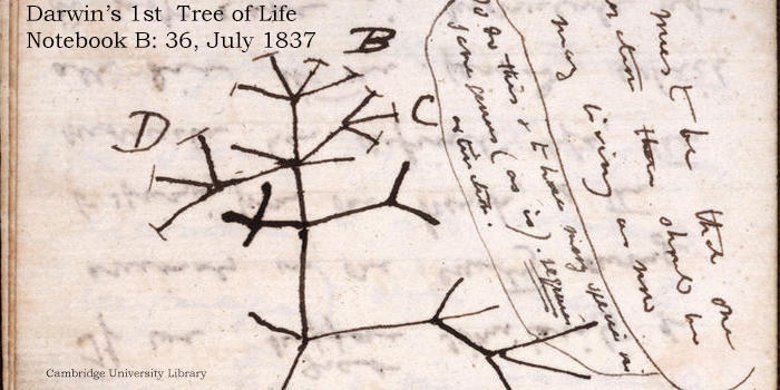 Darwin's 1st Tree of Life
Notebook B: 36, July 1837
B
C
D
must be that one
then should be
living as now
do this & to have many species in
same genus (as is). requires
extinction.
Cambridge University Library